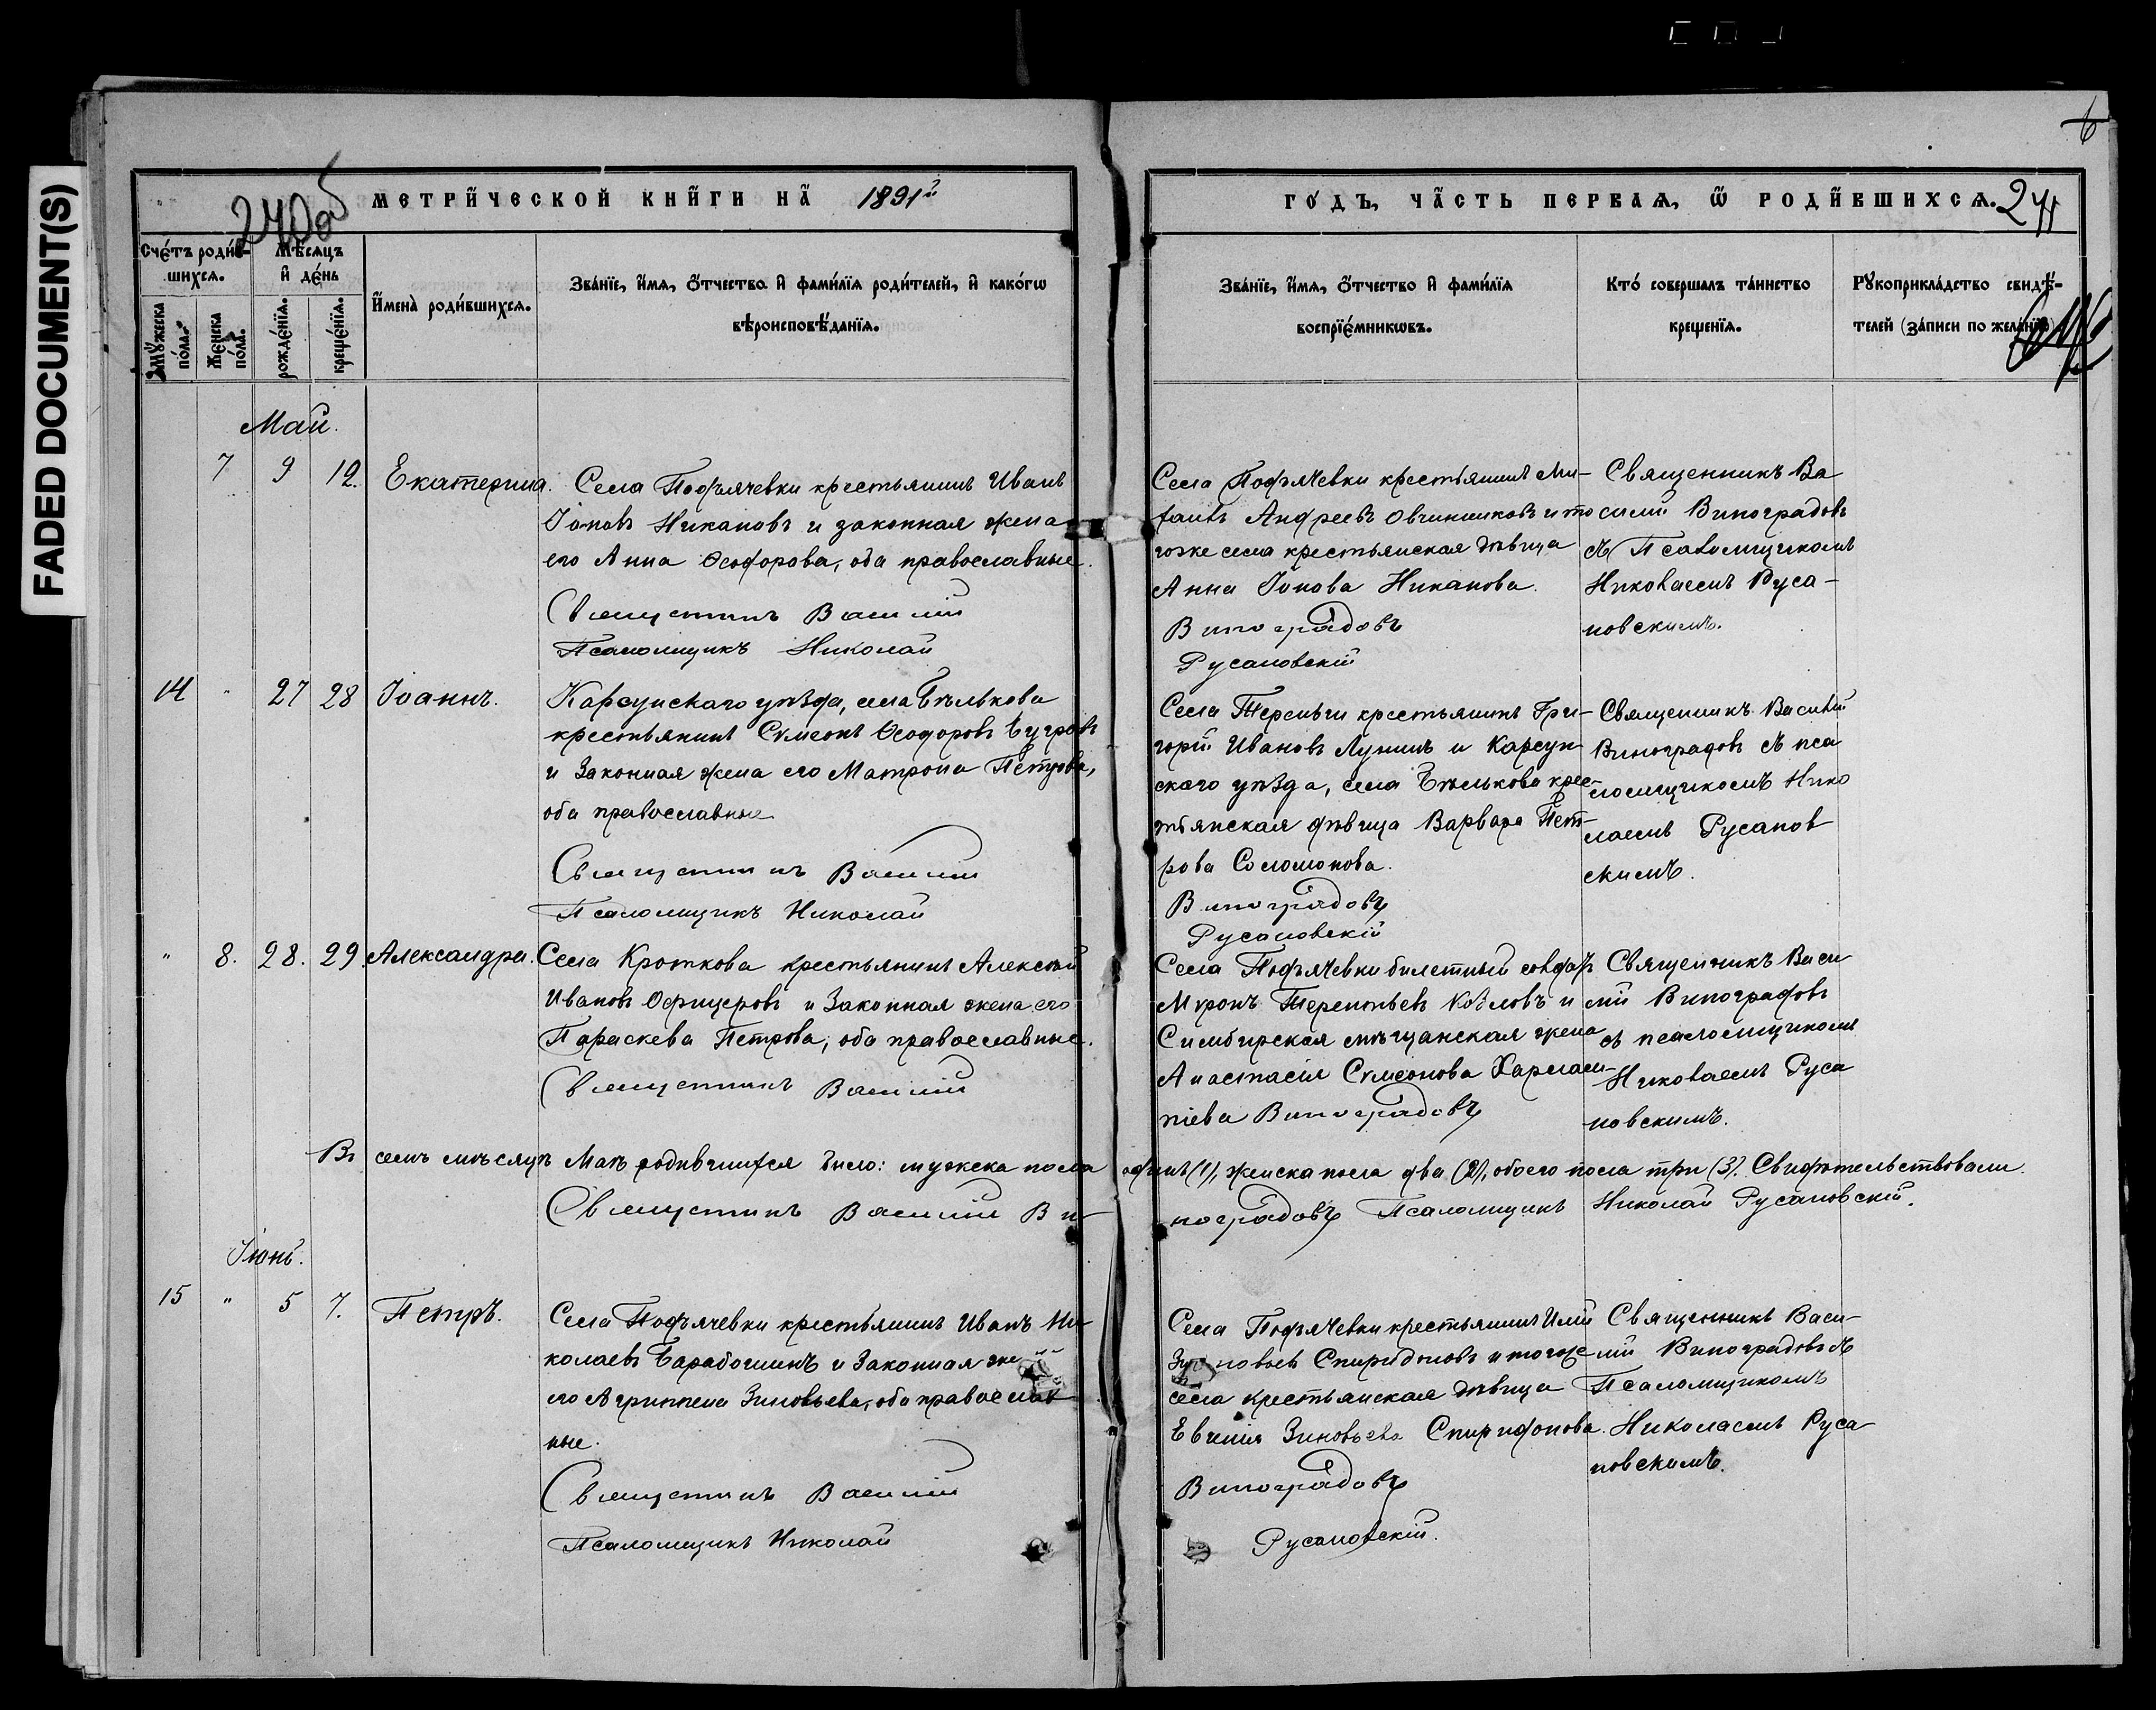 FADED DOCUMENT(S)
6
240об
МЕТРИЧЕСКОЙ КНИГИ НА 1891й
ГОДЪ, ЧАСТЬ ПЕРВАЯ, Ѿ РОДИВШИХСЯ.
241
Счетъ родив-
шихся.
Мѣсяцъ
и день
Мужеска
пола.
Женска
пола.
рожденія.
крещенія.
Имена родившихся.
Званіе, имя, отчество и фамилія родителей, и какогѡ
вѣроисповѣданія.
Званіе, имя, отчество и фамилія
воспріемникѡвъ.
Кто совершалъ таинство
крещенія.
Рꙋкоприкладство свидѣ-
телей (записи по желанію)
Май.
7 9 12. Екатерина.
Села Подъячевки крестьянинъ Иванъ
Іоновъ Никановъ и законная жена
его Анна Ѳеодорова, оба православные.
Священникъ Василій
Псаломщикъ Николай
Села Подъячевки крестьянинъ Ми-
хаилъ Андреевъ Овчинниковъ и то
гоже села крестьянская дѣвица
Анна Іонова Никанова.
Виноградовъ
Русановскій
Священникъ Ва
силій Виноградовъ
съ Псаломщикомъ
Николаемъ Руса-
новскимъ.
14 " 27 28 Іоаннъ.
Карсунскаго уѣзда, села Бѣлькова
крестьянинъ Сѵмеонъ Ѳеодоровъ Бугровъ
и Законная жена его Матрона Петрова,
оба православные
Священникъ Василій
Псаломщикъ Николай
Села Тереньги крестьянинъ Гри-
горій Ивановъ Лунинъ и Карсун-
скаго уѣзда, села Бѣлькова крес-
тьянская дѣвица Варвара Пет-
рова Соломонова.
Виноградовъ
Русановскій
Священникъ Василій
Виноградовъ съ пса
ломщикомъ Нико
лаемъ Русанов
скимъ.
" 8. 28. 29. Александра.
Села Кроткова крестьянинъ Алексѣй
Ивановъ Офицеровъ и Законная жена его
Параскева Петрова, оба православные.
Священникъ Василій
Села Подъячевки билетный солдатъ
Миронъ Терентьевъ Козловъ и
Симбирская мѣщанская жена
Анастасія Сѵмеонова Харлам-
піева Виноградовъ
Священникъ Васи
лій Виноградовъ
съ псаломщикомъ
Николаемъ Руса
новскимъ.
Въ семъ мѣсяцѣ Маѣ родившихся было: мужеска пола одинъ (1), женска пола два (2), обоего пола три (3). Свидѣтельствовали
Священникъ Василій Ви-
ноградовъ Псаломщикъ Николай Русановскій.
Іюнь.
15 " 5 7. Петръ.
Села Подъячевки крестьянинъ Иванъ Ни-
колаевъ Барабошинъ и Законная же
его Агриппена Зиновьева, оба православ
ные.
Священникъ Василій
Псаломщикъ Николай
Села Подъячевки крестьянинъ Илій
Зиновьевъ Спиридоновъ и тогоже
села крестьянская дѣвица
Евгенія Зиновьева Спиридонова.
Виноградовъ
Русановскій.
Священникъ Васи-
лій Виноградовъ съ
Псаломщикомъ
Николаемъ Руса-
новскимъ.